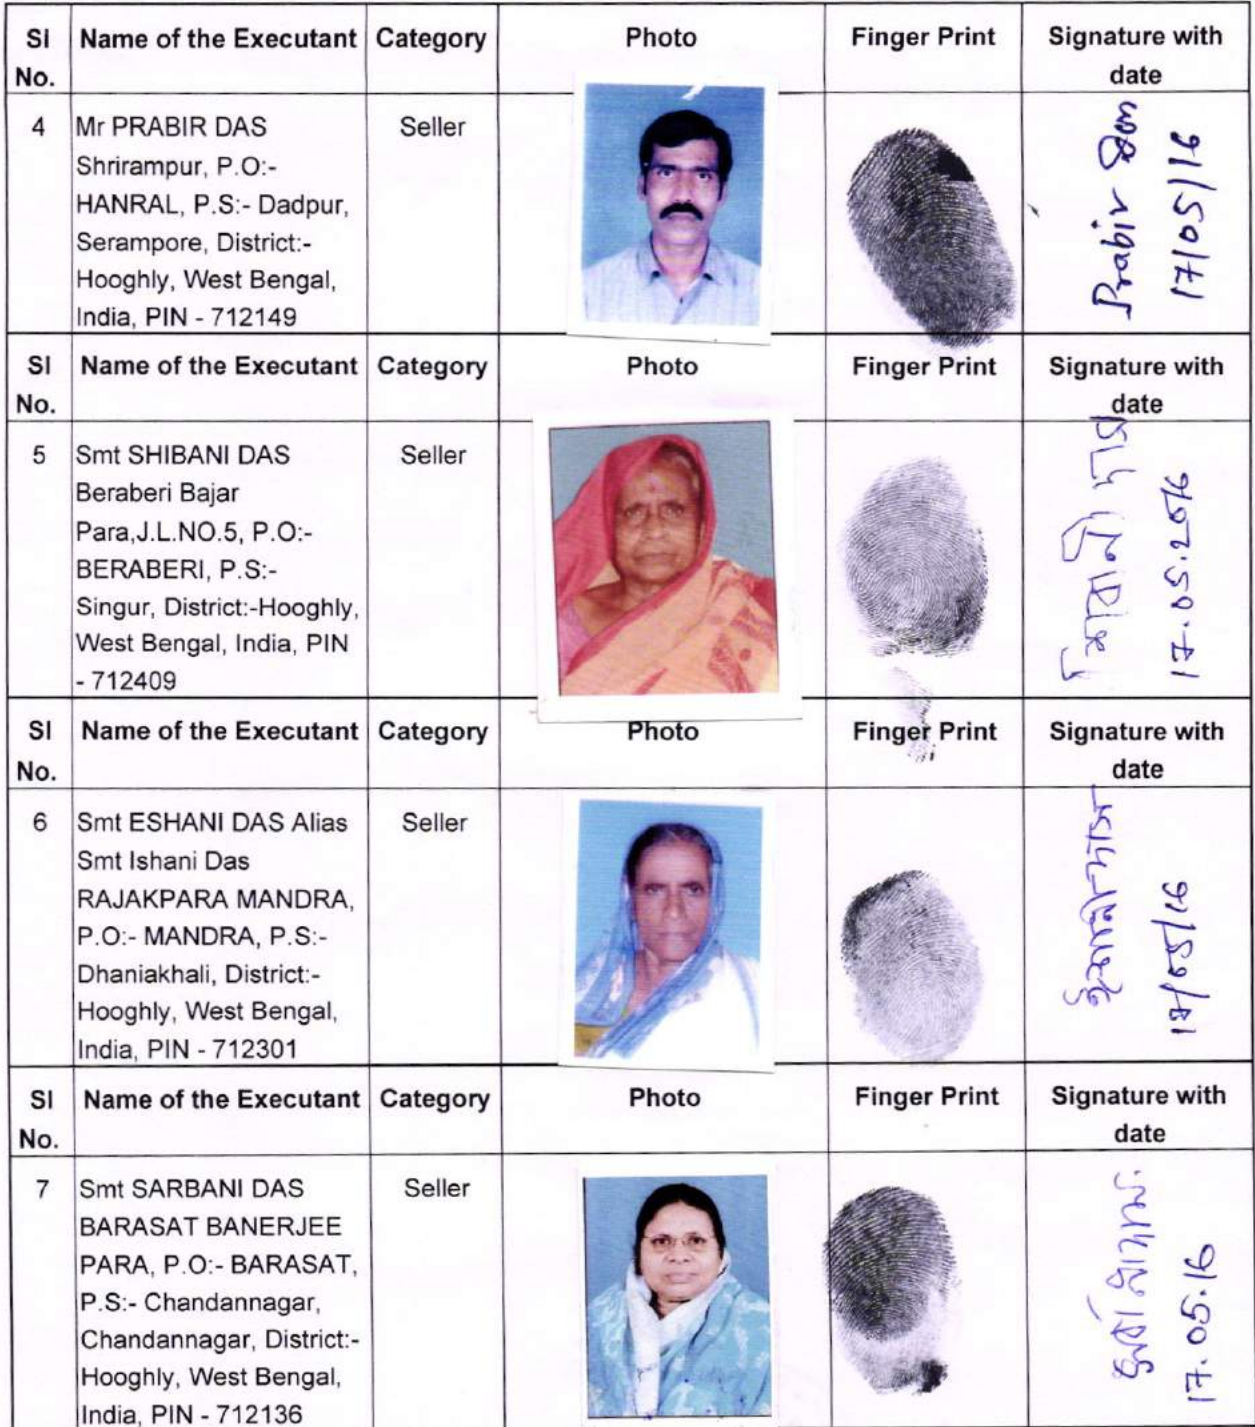 Sl No. Name of the Executant Category Photo Finger Print Signature with date
4 Mr PRABIR DAS Seller
Shrirampur, P.O:-
HANRAL, P.S:- Dadpur,
Serampore, District:-
Hooghly, West Bengal,
India, PIN - 712149
Prabir Das
17/05/16
Sl No. Name of the Executant Category Photo Finger Print Signature with date
5 Smt SHIBANI DAS Seller
Beraberi Bajar
Para,J.L.NO.5, P.O:-
BERABERI, P.S:-
Singur, District:-Hooghly,
West Bengal, India, PIN
- 712409
শিবানী দাস
17.05.2016
Sl No. Name of the Executant Category Photo Finger Print Signature with date
6 Smt ESHANI DAS Alias Seller
Smt Ishani Das
RAJAKPARA MANDRA,
P.O:- MANDRA, P.S:-
Dhaniakhali, District:-
Hooghly, West Bengal,
India, PIN - 712301
ঈশানী দাস
17/05/16
Sl No. Name of the Executant Category Photo Finger Print Signature with date
7 Smt SARBANI DAS Seller
BARASAT BANERJEE
PARA, P.O:- BARASAT,
P.S:- Chandannagar,
Chandannagar, District:-
Hooghly, West Bengal,
India, PIN - 712136
17.05.16